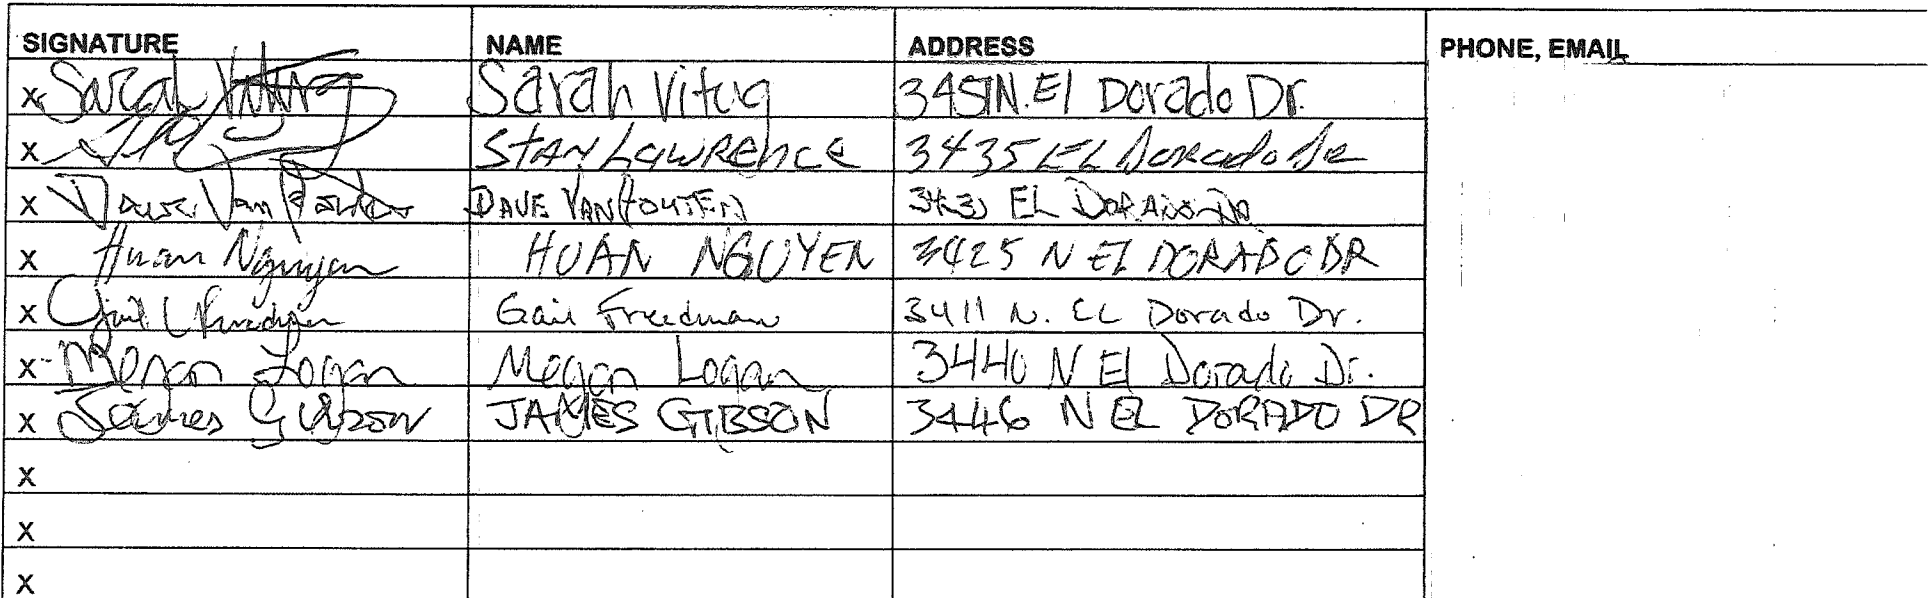 SIGNATURE NAME ADDRESS PHONE, EMAIL
X Sarah Vitug Sarah Vitug 3451 N. El Dorado Dr.
X STAN LAWRENCE 3435 EL Dorado Dr
X Dave Van Houten DAVE VAN HOUTEN EL DORADO DR
X Huan Nguyen HUAN NGUYEN 3425 N EL DORADO DR
X Gail Freedman Gail Freedman 3411 N. EL Dorado Dr.
X Megan Logan Megan Logan 3440 N El Dorado Dr.
X James Gibson JAMES GIBSON 3446 N EL DORADO DR
X
X
X